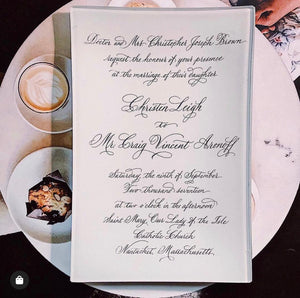 Doctor and Mrs. Christopher Joseph Brown
request the honour of your presence
at the marriage of their daughter
Christen Leigh
to
Mr. Craig Vincent Arenoff
Saturday, the ninth of September
Two thousand seventeen
at two o'clock in the afternoon
Saint Mary, Our Lady of the Isle
Catholic Church
Nantucket, Massachusetts